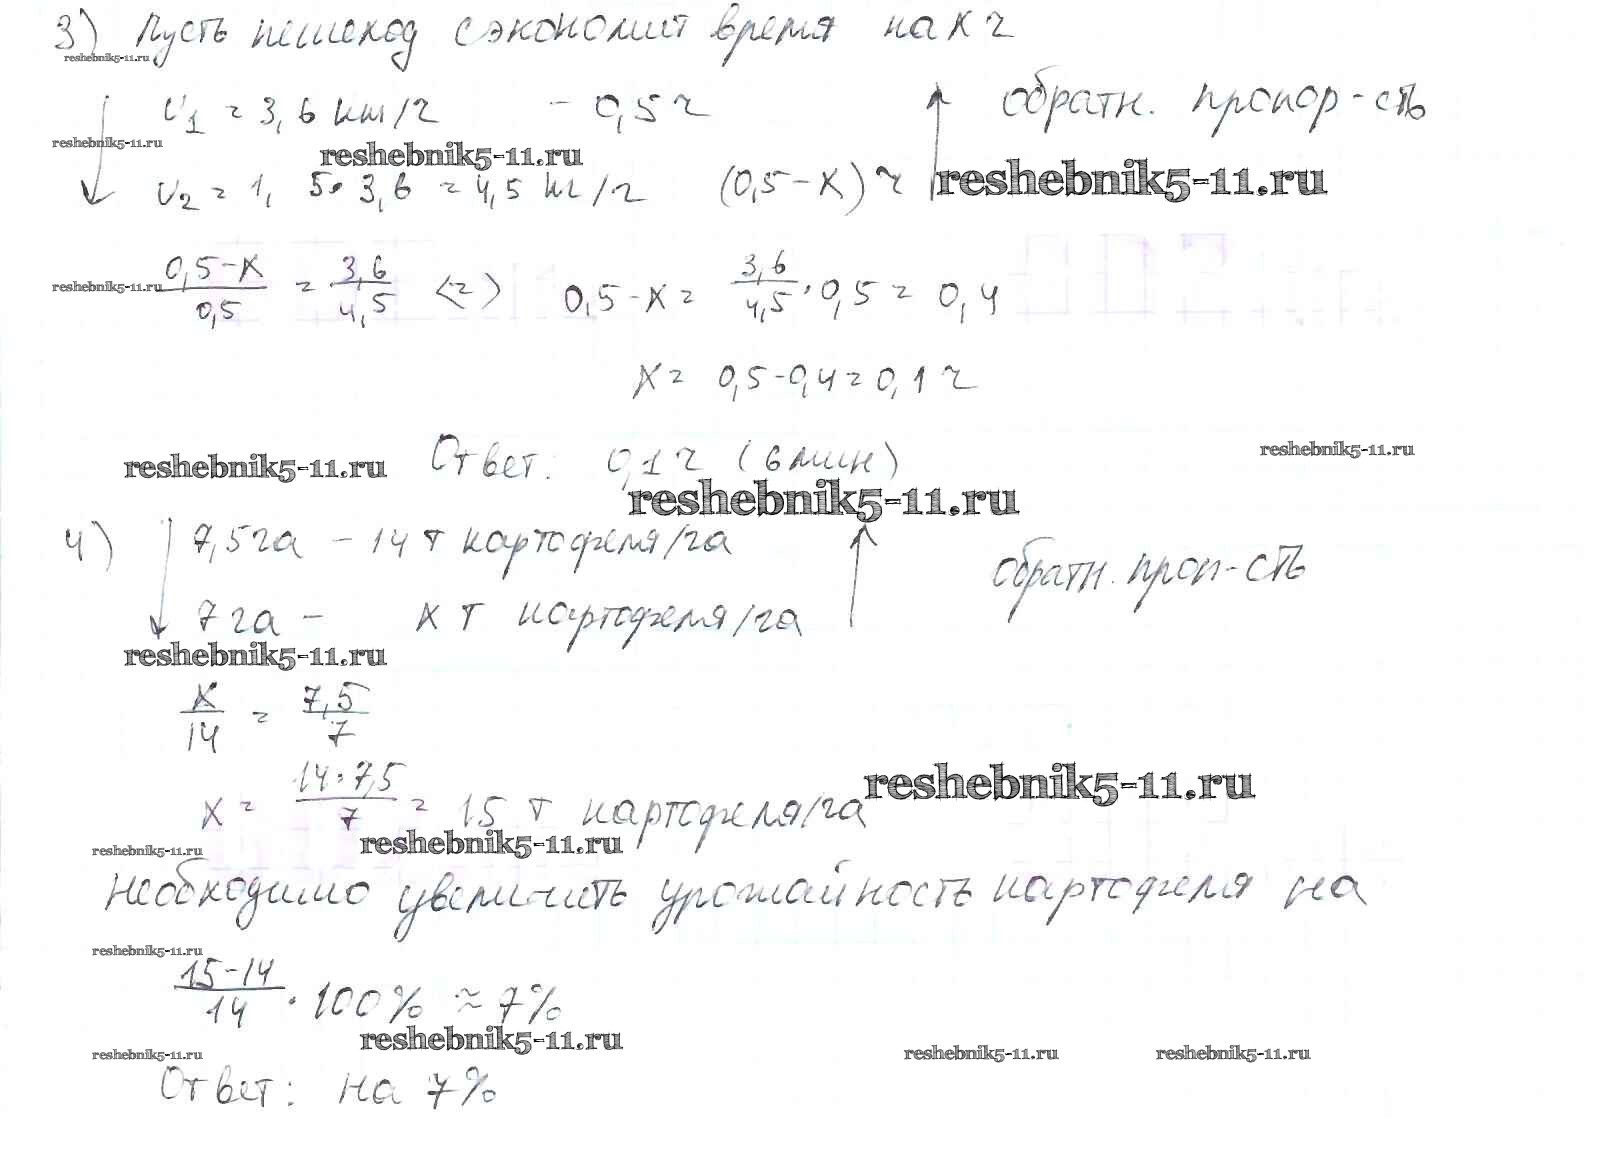 3) Пусть пешеход сэкономит время на x ч
reshebnik5-11.ru
v₁ = 3,6 км/ч - 0,5 ч обратн. пропор-сть
reshebnik5-11.ru
reshebnik5-11.ru
v₂ = 1, 5 · 3,6 = 4,5 км/ч (0,5 - x) ч
reshebnik5-11.ru
reshebnik5-11.ru
(0,5-x)/0,5 = 3,6/4,5 <=> 0,5 - x = 3,6/4,5 · 0,5 = 0,4
x = 0,5 - 0,4 = 0,1 ч
reshebnik5-11.ru
Ответ: 0,1 ч (6 мин)
reshebnik5-11.ru
reshebnik5-11.ru
4) 7,5 га - 14 т картофеля/га обратн. проп-сть
7 га - x т картофеля/га
reshebnik5-11.ru
x/14 = 7,5/7
reshebnik5-11.ru
x = 14·7,5/7 = 15 т картофеля/га
reshebnik5-11.ru
reshebnik5-11.ru
Необходимо увеличить урожайность картофеля на
reshebnik5-11.ru
(15-14)/14 · 100% ≈ 7%
reshebnik5-11.ru
reshebnik5-11.ru
reshebnik5-11.ru
reshebnik5-11.ru
Ответ: на 7%